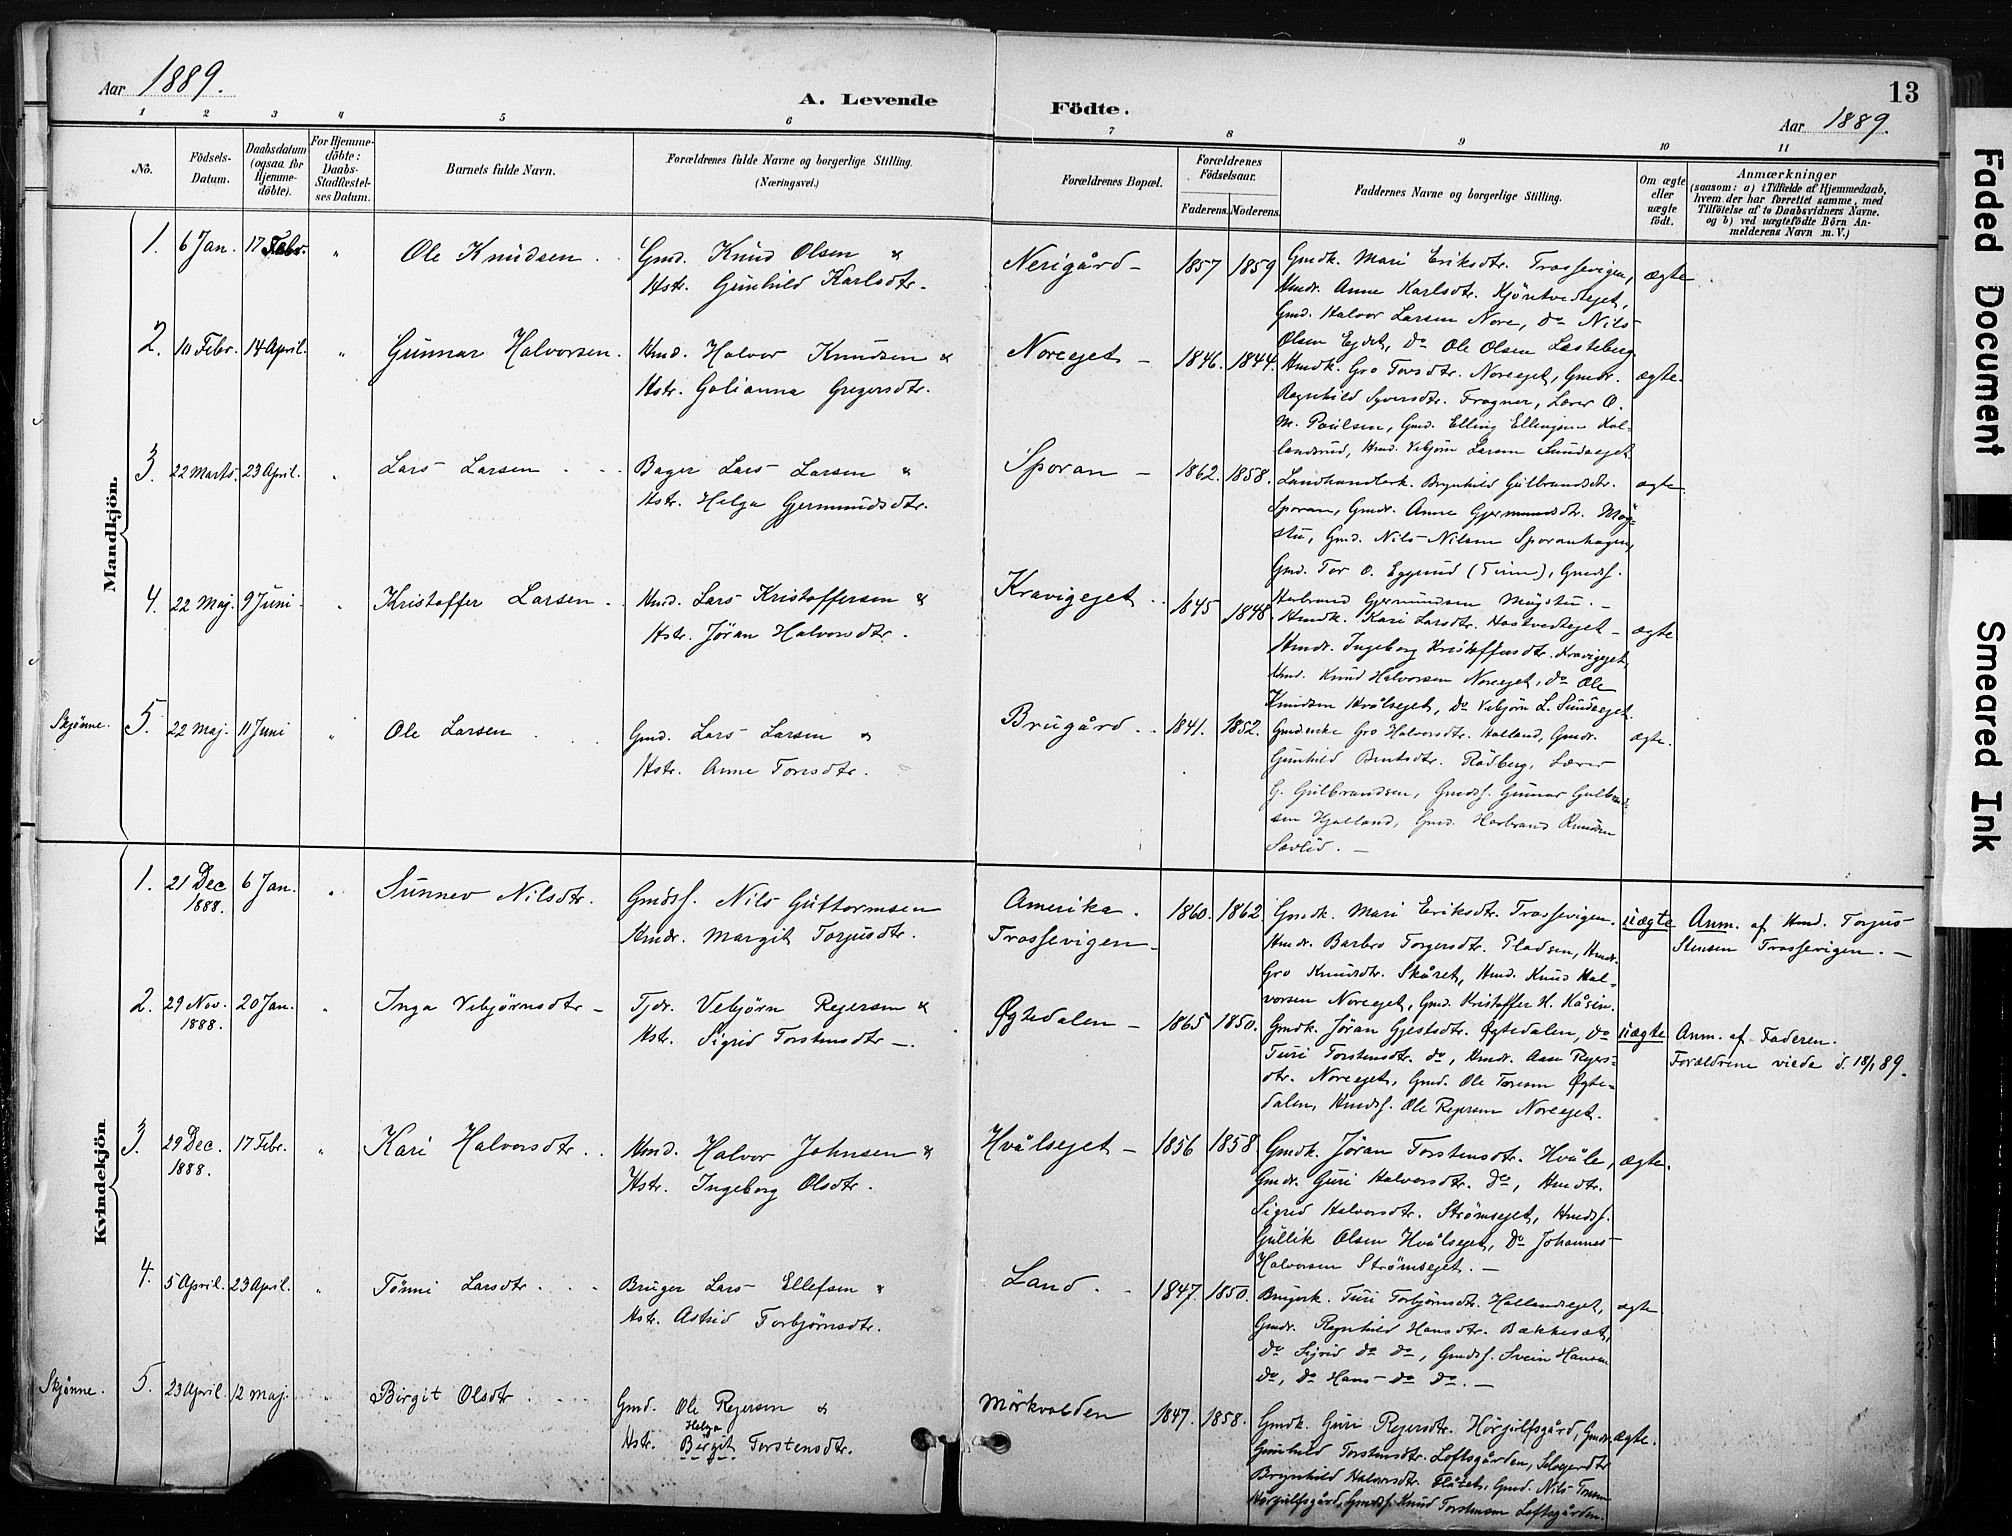 Aar 1889.
A. Levende Födte.
13
Aar 1889.
1 2 3 4 5 6 7 8 9 10 11
No.
Födsels-Datum.
Daabsdatum (ogsaa for Hjemmedöbte).
For Hjemmedöbte: Daabs-Stadfæstelses Datum.
Barnets fulde Navn.
Forældrenes fulde Navne og borgerlige Stilling.
(Næringsvei.)
Forældrenes Bopæl.
Forældrenes Födselsaar.
Faderens. Moderens.
Faddernes Navne og borgerlige Stilling.
Om ægte eller uægte födt.
Anmærkninger
(saasom: a) i Tilfælde af Hjemmedaab, hvem der har forrettet samme, med Tilföielse af to Daabsvidners Navne, og b) ved uægtefödte Börn Anmelderens Navn m. V.)
Mandkjön.
1. 6 Jan. 17 Febr. " Ole Knudsen . Gmd. Knud Olsen &
Hstr. Gunhild Karlsdtr.
Nerigård – 1857 1859
Gmdk. Mari Eriksdtr. Trossevigen,
Hmdr. Anne Karlsdtr. Kjöntvedtejet,
Gmd. Halvor Larsen Nore, do Nils
Olsen Ejdet, Do Ole Olsen Lasteberg
ægte
2. 10 Febr. 14 April. " Gunnar Halvorsen. Hmd. Halvor Knudsen &
Hstr. Golianna Gregersdtr.
Noreejet – 1846. 1844.
Hmdk. Gro Torsdtr. Noreejet, Gmdr.
Ragnhild Syversdtr. Fragner, Lærer O.
M. Poulsen, Gmd. Elling Ellingsen Kol-
landsrud, Hmd. Vebjörn Larsen Sundeejet
ægte.
3. 22 Marts. 23 April. " Lars Larsen Bager Lars Larsen &
Hstr. Helga Gjermundsdtr.
Sporan – 1862. 1858.
Landhandlerk. Brynhild Gulbrandsdtr.
Sporan, Gmdr. Anne Gjermundsdtr. Mög-
stu, Gmd. Nils Nilsen Sporanhagen,
Gmd. Tor O. Eggerud (Tinn), Gmdsf.
Herbrand Gjermundsen Mögstu. –
ægte
4. 22 Maj. 9 Juni " Kristoffer Larsen Hmd. Lars Kristoffersen &
Hstr. Jøran Halvorsdtr.
Kravigejet 1845 1848.
Hmdk. Kari Larsdtr. Hostvedtejet –
Hmdr. Ingeborg Kristoffersdtr. Kravigejet,
Hmd. Knud Halvorsen Noreejet, Do Ole
Knudsen Hvålsejet, Do Vebjörn L. Sundeejet.
ægte
Skjönne. 5. 22 Maj. 11 Juni " Ole Larsen Gmd. Lars Larsen &
Hstr. Anne Toresdtr.
Brugård 1841. 1852.
Gmdenke Gro Halvorsdtr. Holland, Gmdr.
Gunhild Bentsdtr. Rødberg, Lærer
G. Gulbrandsen, Gmdsf. Gunnar Gulbrand-
sen Hjalland, Gmd. Herbrand Knudsen
Sevlid. –
ægte.
Kvindekjön.
1. 21 Dec 1888. 6 Jan. " Sunnev Nilsdtr. Gmdsf. Nils Guttormsen
Hmdr. Margit Torjusdtr.
Amerika.
Trossevigen – 1860. 1862
Gmdk. Mari Eriksdtr. Trossevigen.
Hmdr. Barbro Torgersdtr. Pladsen, Hmdr.
Gro Knudsdtr. Skåret, Hmd. Knud Hal-
vorsen Noreejet, Gmd. Kristoffer H. Kåsin.
uægte
Anm. af Hmd. Torjus
Stensen Trossevigen. –
2. 29 Nov. 1888. 20 Jan. " Inga Vebjørnsdtr – Tjdr. Vebjørn Rejersen &
Hstr. Sigrid Torstensdtr –.
Øgtedalen – 1865 1850.
Gmdk. Jøran Gjestsdtr. Øgtedalen, Do
Turi Torstensdtr. do, Hmdr. Aase Rejers-
dtr. Noreejet, Gmd. Ole Toresen Øgte-
dalen, Hmdsf. Ole Rejersen Noreejet.
uægte
Anm. af Faderen.
Forældrene viede d. 18/1 89.
3. 29 Dec. 1888. 17 Febr. " Kari Halvorsdtr. Hmd. Halvor Johnsen &
Hstr. Ingeborg Olsdtr.
Hvålsejet – 1856 1858
Gmdk. Jøran Torstensdtr. Hvåle,
Gmdr. Guri Halvorsdtr. Do, Hmdtr.
Sigrid Halvorsdtr. Strømsejet, Hmdsf.
Gullik Olsen Hvålsejet, Do Johannes
Halvorsen Strømsejet. –
ægte.
4. 5 April. 23 April. " Tønni Larsdtr. Bruger Lars Ellefsen &
Hstr. Astrid Torbjørnsdtr.
Land. 1847. 1850.
Brugerk. Turi Torbjørnsdtr. Hollandsejet,
Gmdr. Ragnhild Hansdtr. Bækkeset,
do Sigrid do do, Gmdsf. Svein Hansen
do, do Hans do do. –
ægte
Skjønne. 5. 23 April. 12 Maj. " Birgit Olsdtr. Gmd. Ole Rejersen &
Helga
Hstr. Birgit Torstensdtr.
Mörkvolden 1847. 1858.
Gmdk. Guri Rejersdtr. Hörjulfsgård, Gmdr.
Gunhild Torstensdtr. Loftsgården, Selvejerdtr
Brynhild Halvorsdtr. Flåten, Gmd. Nils Toresen
Hörjulfsgård, Gmdsf. Knud Torstensen Loftsgården.
ægte.
Faded Document
Smeared Ink